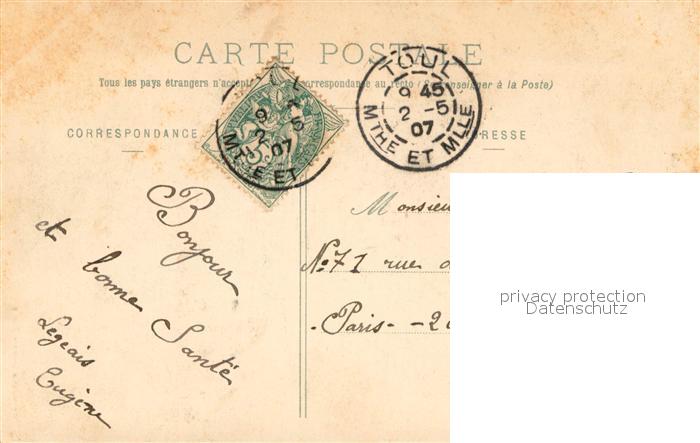 CARTE POSTALE
Tous les pays étrangers n'accept correspondance au recto (Se renseigner à la Poste)
CORRESPONDANCE
RESSE
9
2 -5
07
MTHE ET
TOUL
9 45
2 -5
07
MTHE ET MLLE
Monsieu
No 71 rue d
-Paris- -20
Bonjour
et bonne Santé
Legeais
Eugène
privacy protection
Datenschutz